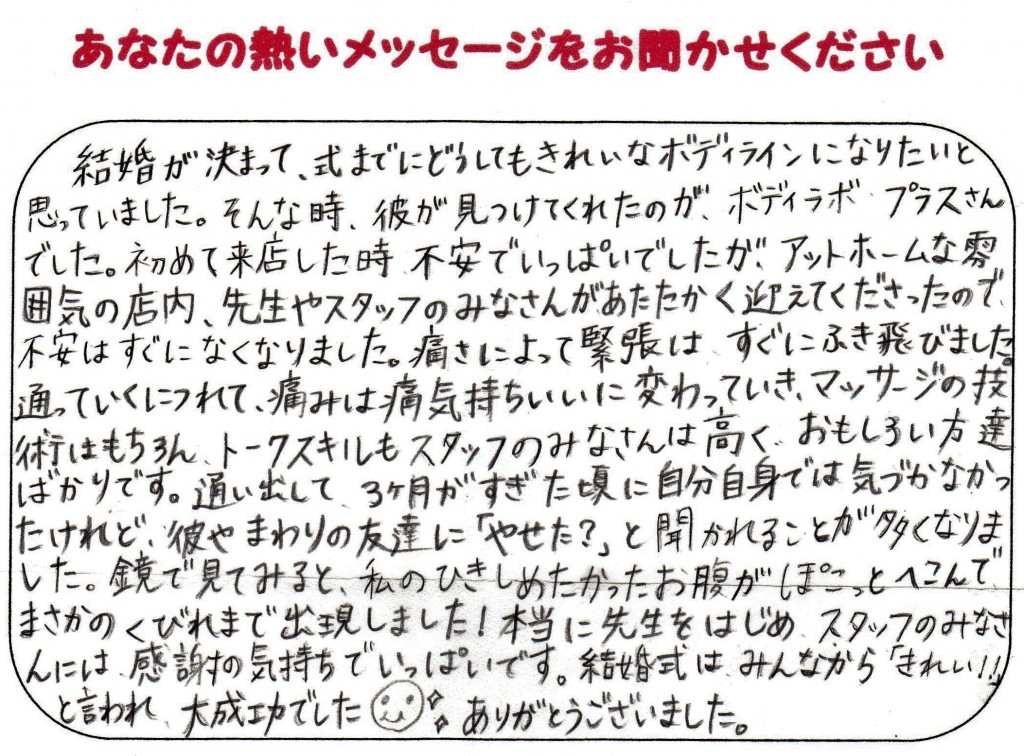 あなたの熱いメッセージをお聞かせください
結婚が決まって、式までにどうしてもきれいなボディラインになりたいと
思っていました。そんな時、彼が見つけてくれたのが、ボディラボ プラスさん
でした。初めて来店した時 不安でいっぱいでしたが、アットホームな雰
囲気の店内、先生やスタッフのみなさんがあたたかく迎えてくださったので、
不安はすぐになくなりました。痛さによって緊張は、すぐにふき飛びました。
通っていくにつれて、痛みは痛気持ちいいに変わっていき、マッサージの技
術はもちろん、トークスキルもスタッフのみなさんは高く、おもしろい方達
ばかりです。通い出して、3ヶ月がすぎた頃に自分自身では気づかなかっ
たけれど、彼やまわりの友達に「やせた?」と聞かれることが多くなりま
した。鏡で見てみると、私のひきしめたかったお腹がぽこっとへこんで、
まさかのくびれまで出現しました!本当に先生をはじめ、スタッフのみなさ
んには、感謝の気持ちでいっぱいです。結婚式は、みんなから「きれい!!」
と言われ、大成功でした ありがとうございました。